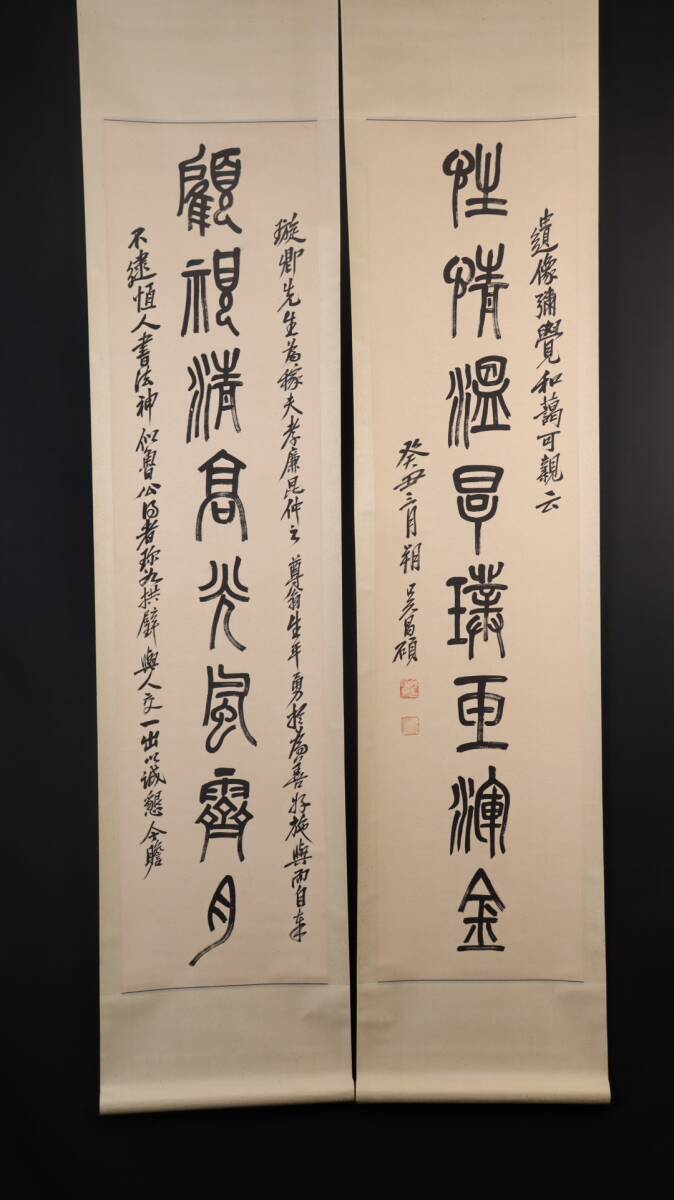 顧視清高光風霽月
璇卿先生為稼夫孝廉昆仲之尊翁生平勇於為善好施與而自奉
不逮恒人書法神似魯公得者珍如拱璧與人交一出以誠懇今瞻
性情溫厚璞玉渾金
遺像彌覺和藹可親云
癸丑三月朔吳昌碩